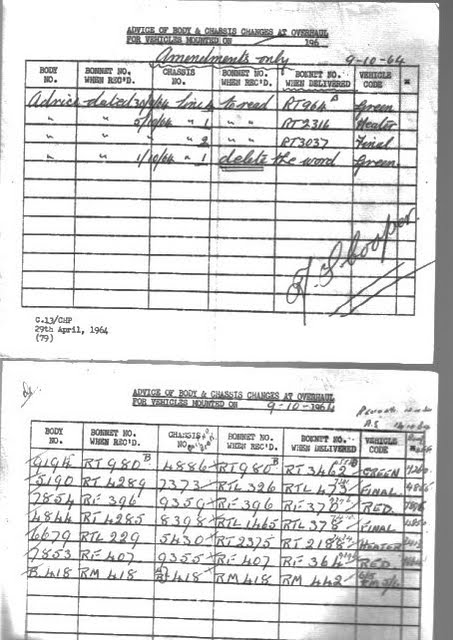 ADVICE OF BODY & CHASSIS CHANGES AT OVERHAUL
FOR VEHICLES MOUNTED ON 196
Amendments only 9-10-64
BODY NO. BONNET NO. WHEN REC'D. CHASSIS NO. BONNET NO. WHEN REC'D. BONNET NO. WHEN DELIVERED VEHICLE CODE
Advice dated 30/9/64 line 4 to read RT964 Green
" " 5/10/64 " 1 " " RT2316 Heater
" " " 2 RT3037 Final
" " 1/10/64 " 1 delete the word Green
C.13/CHP
29th April, 1964
(79)
ADVICE OF BODY & CHASSIS CHANGES AT OVERHAUL
FOR VEHICLES MOUNTED ON 9-10-1964
BODY NO. BONNET NO. WHEN REC'D. CHASSIS NO. BONNET NO. WHEN REC'D. BONNET NO. WHEN DELIVERED VEHICLE CODE
9194 RT980 B 4886 RT980 B RT3462 GREEN
5190 RT4289 7373 RTL326 RTL473 FINAL
7854 RF396 9359 RF396 RF370 RED
4844 RT4285 8398 RTL1465 RTL378 FINAL
6679 RTL229 5430 RT2375 RT2188 HEATER
7853 RF407 9355 RF407 RF364 RED
B.418 RM418 418 RM418 RM442